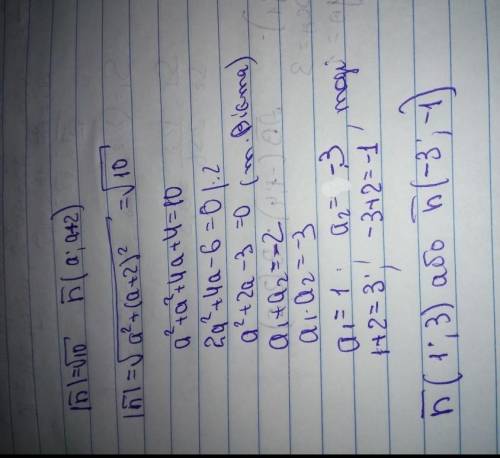 |n̄|=√10 n̄(a; a+2)
|n̄|=√a²+(a+2)² =√10
a²+a²+4a+4=10
2a²+4a-6=0|:2
a²+2a-3=0 (т. Вієта)
a₁+a₂=-2
a₁·a₂=-3
a₁=1; a₂=-3, тоді
1+2=3; -3+2=-1
n̄(1; 3) або n̄(-3; -1)